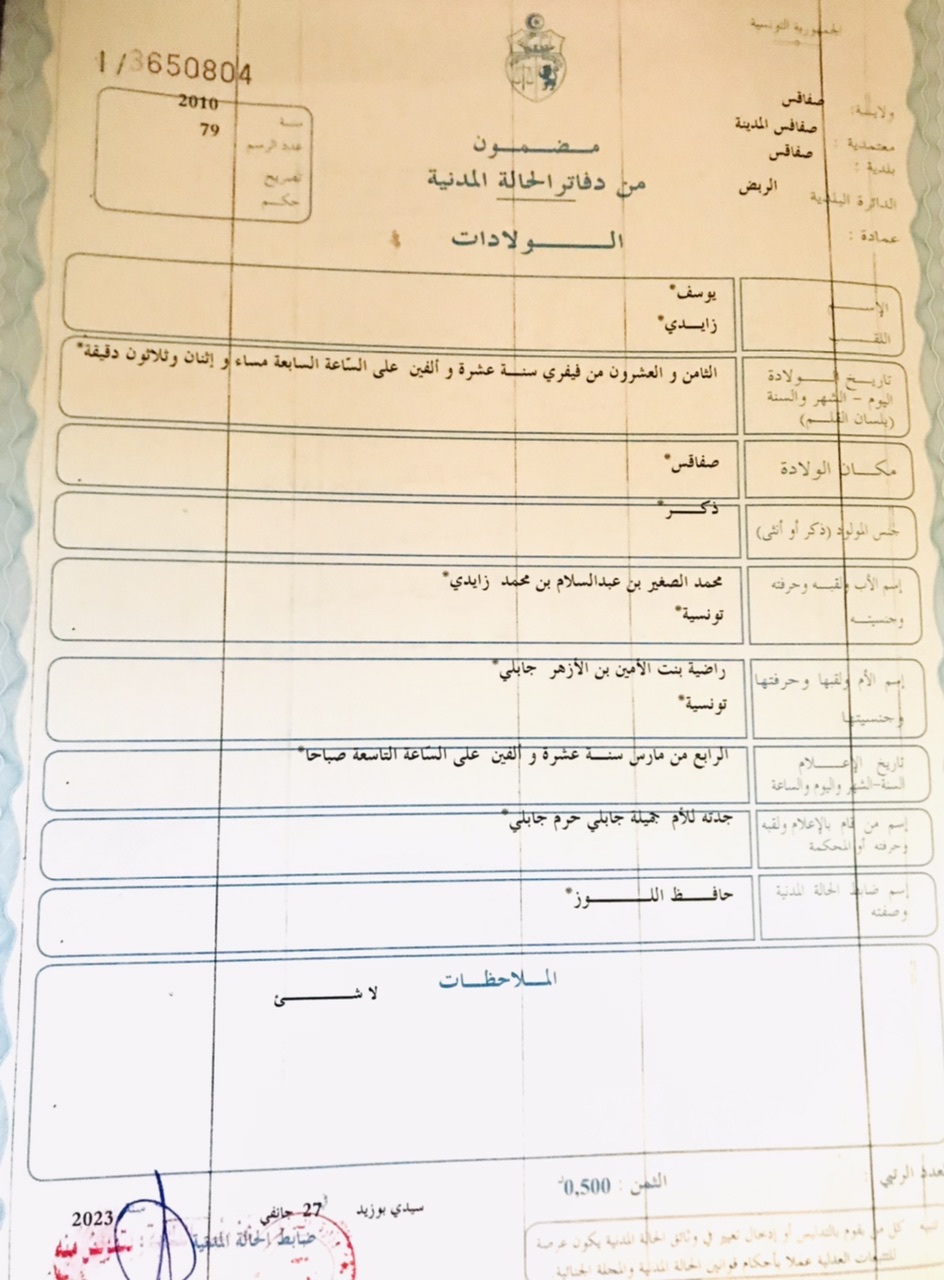 الجمهورية التونسية
1/3650804
ولاية: صفاقس
معتمدية : صفاقس المدينة
بلدية : صفاقس
الدائرة البلدية الربض
عمادة :
سنة 2010
عدد الرسم 79
تصريح
حكم
مضمون
من دفاتر الحالة المدنية
الولادات
الإسم يوسف*
اللقب زايدي*
تاريخ الولادة الثامن و العشرون من فيفري سنة عشرة و ألفين على السّاعة السابعة مساء و إثنان وثلاثون دقيقة*
اليوم - الشهر والسنة
(بلسان القلم)
مكان الولادة صفاقس*
جنس المولود (ذكر أو أنثى) ذكر*
إسم الأب ولقبه وحرفته محمد الصغير بن عبدالسلام بن محمد زايدي*
وجنسيته تونسية*
إسم الأم ولقبها وحرفتها راضية بنت الأمين بن الأزهر جابلي*
وجنسيتها تونسية*
تاريخ الإعلام الرابع من مارس سنة عشرة و ألفين على السّاعة التاسعة صباحا*
السنة-الشهر واليوم والساعة
إسم من قام بالإعلام ولقبه جدته للأم جميلة جابلي حرم جابلي*
وحرفته أو المحكمة
إسم ضابط الحالة المدنية حافظ اللوز*
وصفته
الملاحظات
لا شئ
العدد الرتبي :
الثمن : 0,500د
سيدي بوزيد 27 جانفي سنة 2023
ضابط الحالة المدنية
بتفويض منه
تنبيه كل من يقوم بالتدليس أو إدخال تغيير في وثائق الحالة المدنية يكون عرضة
للتتبعات العدلية عملا بأحكام قوانين الحالة المدنية والمجلة الجنائية